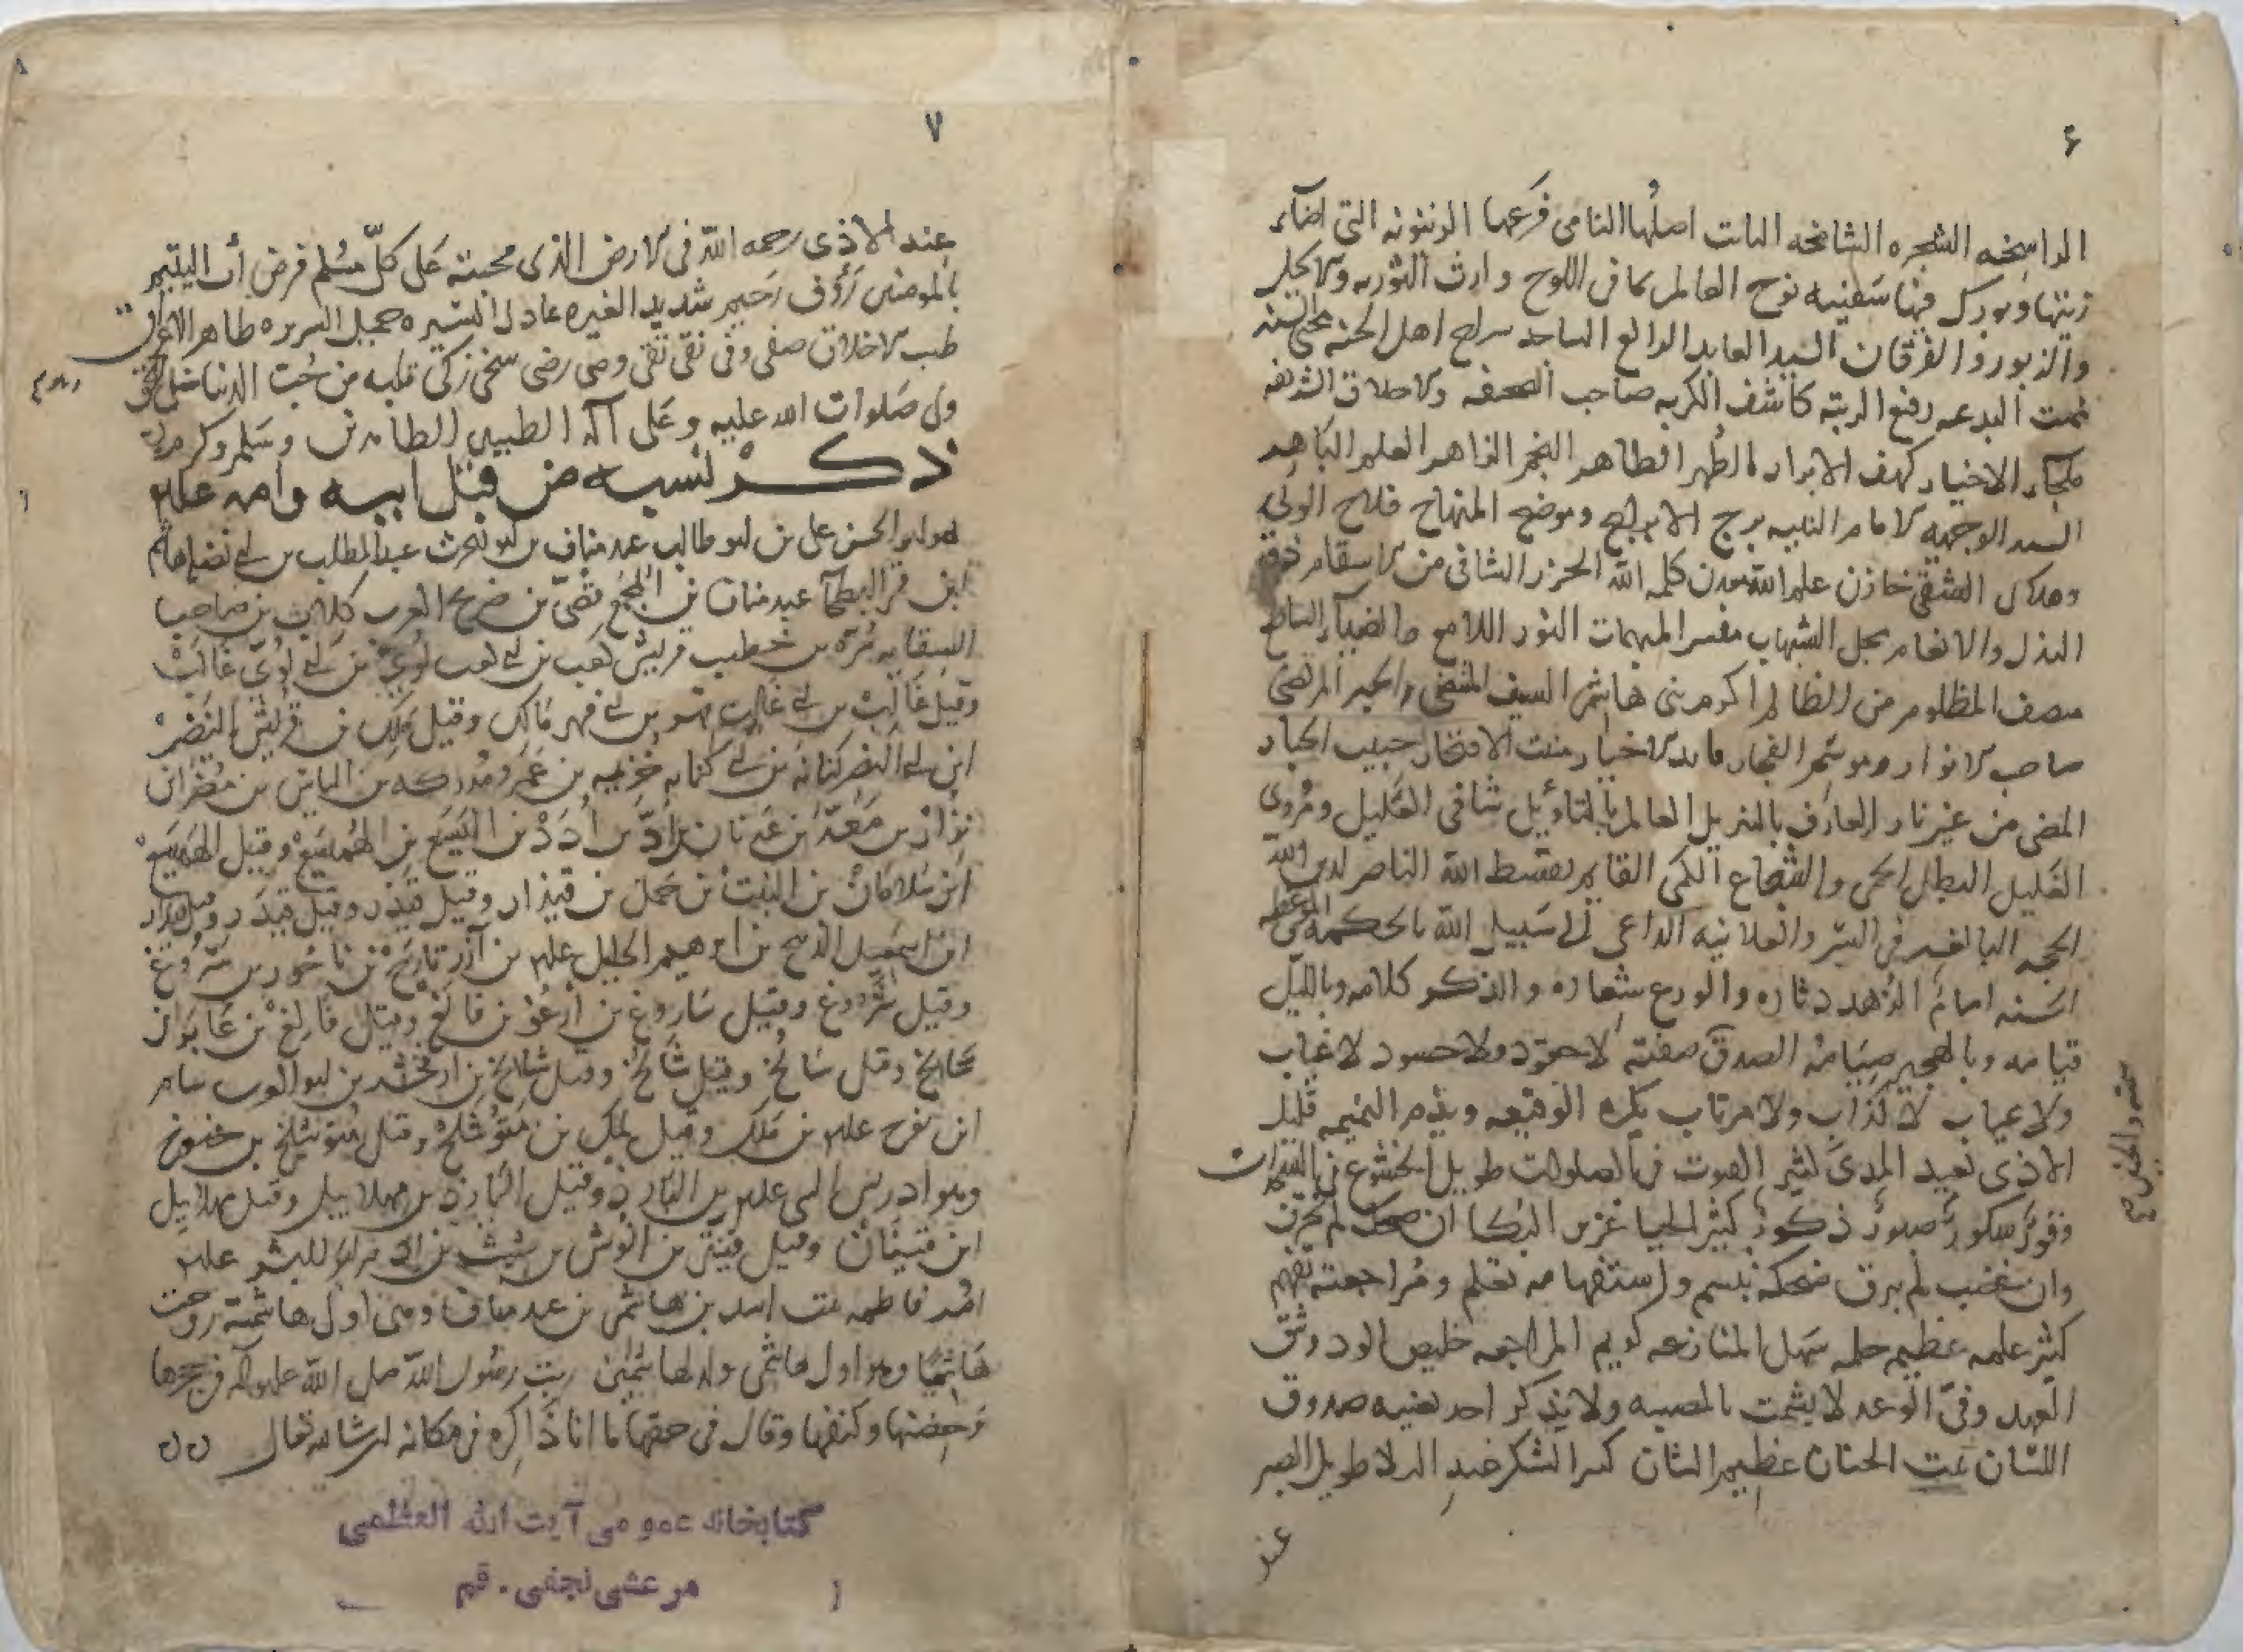 ۶
الراسخه الشجره الشامخه الىابت اصلُها النامى فَرعها الزىىونه التى اضآء
زيتها وبورك فيها سَفينه نوح العالم بما فى اللوح وارث التوريه والانجيل
والزبور والفرقان السَيد العابد الراكع الساجد سراج اهل الجنه محيى السنه
مميت البدعه رفيع الرتبه كاشف الكربه صاحب الصحفه والاخلاق الشريفه
ملجاء الاخيار كهف الابرار الطُهر الطاهر النجم الزاهر العلم الباهر
السيد الوجيه الامام النبيه برج الابراج وموضح المنهاج فلاح الولى
وهلاك الشقى خازن علم الله معدن كلمه الله الحرز الشافى من الاسقام
البذل والانعام مجلى الشبهات مفسر المبهمات النور اللامع والضيآء الساطع
منصف المظلوم من الظالم اكرم بنى هاشم السيف المنتضى والحبر المرتضى
صاحب الانوار وموسم الفجار قايد الاخيار منبت الافتخار حبيب الجبار
المضى من غير نار العارف بالتنزيل العالم بالتاويل شافى العليل ومُروى
الغليل البطل الحمى والشجاع الكمى القايم بقسط الله الناصر لدين الله
الحجه البالغه فى السر والعلانيه الداعى الى سَبيل الله بالحكمه والموعظه
الحسنه امامٌ الزهد دثاره والورع شعاره والذكر كلامه وبالليل
قيامه وبالهجير صيَامه الصدق صفته لا حقود ولا حسود لا غياب
ولا عياب لا كذاب ولا مرتاب يكره الوقيعه ويذم النميمه قليل
الاذى بعيد المدى كثير الصوت فى الصلوات طويل الخشوع فى الفلوات
وقورٌ شكورٌ صبورٌ ذكورٌ كثير الحيا غزير البكا ان ضحك لم يخرق
وان غضب لم يبرق ضحكه تبسم واستفهامه تعلم ومُراجعته تفهم
كثير علمه عظيم حلمه سَهل المنازعه كريم المراجعه خليص الود وثيق
العهد وفىّ الوعد لا يشمت بالمصيبه ولا يذكر احد بغيبه صدوق
اللسان ثبت الجنان عظيم الشان كثير الشكر عند البلا طويل الصبر
عند
۷
عِند الاذى رحمه الله فى الارض الذى محبته عَلى كلّ مسُلم فرض أب اليتيم
بالمومنين رَؤف رَحيم شديد الغيره عادل السَيره جميل السريره طاهر الاعراق
طيب الاخلاق صفى وفى نقى تقى وصى رضى سخى زكى قلبه من حُب الدنيا خلى
ولى صَلوات الله عليه وعَلى آله الطيبين الطاهرين وسَلم وكرم
ذكر نسبه من قبل ابيه وامه علىه
هو ابو الحسن على بن ابو طالب عبد مناف بن ابو الحرث عبد المطلب بن ابى نضله هاشم
ابن قمر البطحآ عبد مناف بن المجمع قصىّ بن صريح العرب كلاب بن صاحب
السقايه مُرّه بن خطيب قريش كعب بن ابى كعب لُوَىّ بن ابى لؤى غالب
وقيل غَالِبْ بن ابى غالب فهر بن ابى فهر مَالِك وقيل مَلِك بن قريش النضر
ابن ابى النضر كنانه بن ابى كنانه خُزيمه بن عَمرو مُدركه بن الياس بن مُضَر ابن
نِزَارْ بن مَعَدّ بَن عَدنان بن اُدّ بن اُدَدْ بن اليَسَع بن الهُمَيسَع وقيل الهَميسع
ابن سَلامَان بن النبت بن حَمَل بن قيذار وقيل قيذر وقيل قيدَر
ابن اسمعيل الذبيح بن ابرهيم الخليل علىه بن آزر تارَخ بن ناحُور بن سَروغ
وقيل شروغ وقيل سَاروغ بن اَرعُو بن فالَغ وقيل فالغ بن عَابَر ابن
وقيل سَالخ وقيل شَالخ وقيل شالخ بن ارفخشد بن ابو العرب سام
ابن نوح علىه بن مَلك وقيل لمَك بن مَتّوُشلخْ وقيل مُتوشلخ بن خنوخ
وهو ادريس النبى علىه بن اليَارِد وقيل اليَارذ بن مهلاييل وقيل مهلائيل
ابن قينَان وقيل قينَن بن انوش بن شيث بن ادم ابو البشر علىه
امّه فاطمه بنت اسد بن هاشم بن عبد مناف وهى اول هاشمية زوجت
هَاشميًا وهو اول هاشمى ولد لهاشميين ربت رسُول الله صلى الله عليه وآله فى حجرها
وحِضنها وكنفها وقال فى حقها ما انا ذَاكِره فى مكانه ان شا الله تعالى
كتابخانه عمومى آيت الله العظمى
مرعشى نجفى - قم